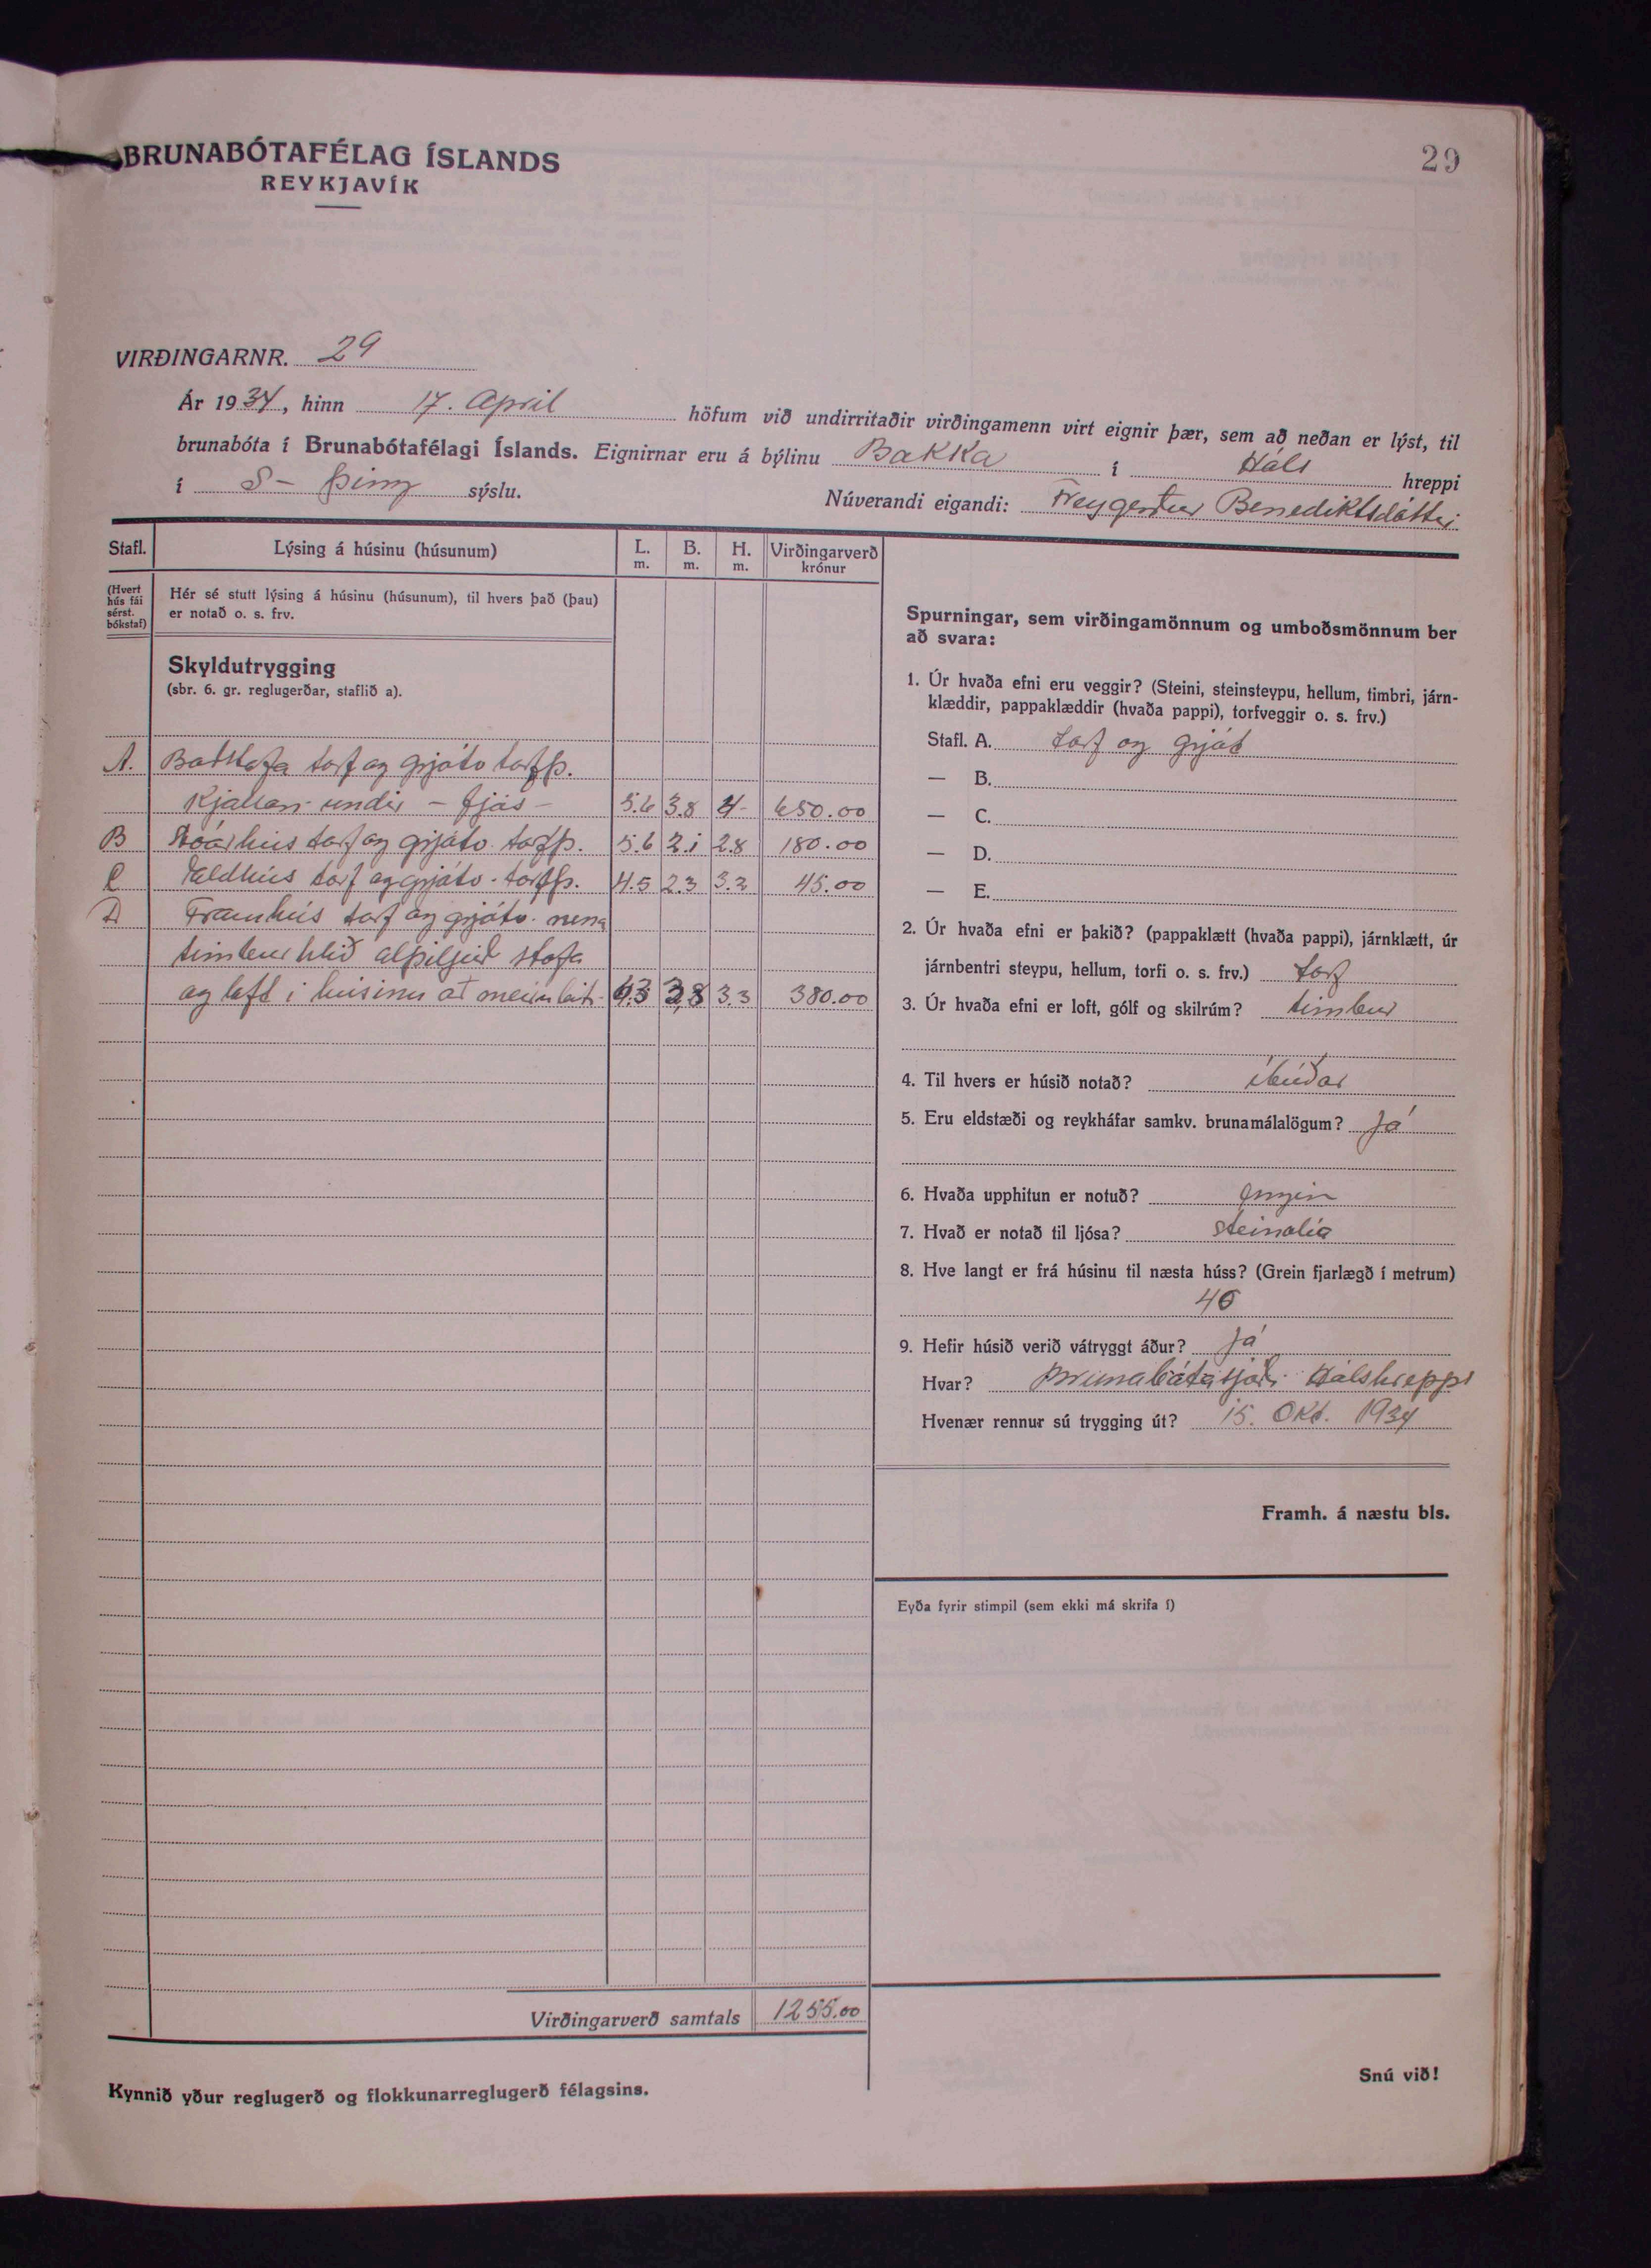 BRUNABÓTAFÉLAG ÍSLANDS
REYKJAVÍK
29
VIRÐINGARNR. 29
Ár 1934, hinn 17. April höfum við undirritaðir virðingamenn virt eignir þær, sem að neðan er lýst, til
brunabóta í Brunabótafélagi Íslands. Eignirnar eru á býlinu Bakka í Háls hreppi
í S-Þing sýslu. Núverandi eigandi: Freygerður Benediktsdóttir
Stafl. Lýsing á húsinu (húsunum) L. m. B. m. H. m. Virðingarverð krónur
(Hvert hús fái sérst. bókstaf)
Hér sé stutt lýsing á húsinu (húsunum), til hvers það (þau)
er notað o. s. frv.
Skyldutrygging
(sbr. 6. gr. reglugerðar, staflið a).
A. Baðstofa torf og grjótv torfþ.
Kjallari undir - fjós - 5.6 3.8 4- 650.00
B húsʼ torf og grjótv. torfþ. 5.6 2.1 2.8 180.00
C Eldhús torf og grjótv. torfþ. 4.5 2.3 3.2 45.00
D Framhús torf og grjótv. nema
timbur hlið alþiljuð stofa
og loft i húsinu að 3.8 3.3 380.00
Virðingarverð samtals 1255.00
Kynnið yður reglugerð og flokkunarreglugerð félagsins.
Spurningar, sem virðingamönnum og umboðsmönnum ber
að svara:
1. Úr hvaða efni eru veggir? (Steini, steinsteypu, hellum, timbri, járn-
klæddir, pappaklæddir (hvaða pappi), torfveggir o. s. frv.)
Stafl. A. torf og grjót
— B.
— C.
— D.
— E.
2. Úr hvaða efni er þakið? (pappaklætt (hvaða pappi), járnklætt, úr
járnbentri steypu, hellum, torfi o. s. frv.) torf
3. Úr hvaða efni er loft, gólf og skilrúm? timbur
4. Til hvers er húsið notað? íbúðar
5. Eru eldstæði og reykháfar samkv. brunamálalögum? Já
6. Hvaða upphitun er notuð? engin
7. Hvað er notað til ljósa? steinolía
8. Hve langt er frá húsinu til næsta húss? (Grein fjarlægð í metrum)
40
9. Hefir húsið verið vátryggt áður? Já
Hvar? Brunabótasjóði Hálshrepps
Hvenær rennur sú trygging út? 15. Okt. 1934
Framh. á næstu bls.
Eyða fyrir stimpil (sem ekki má skrifa í)
Snú við!